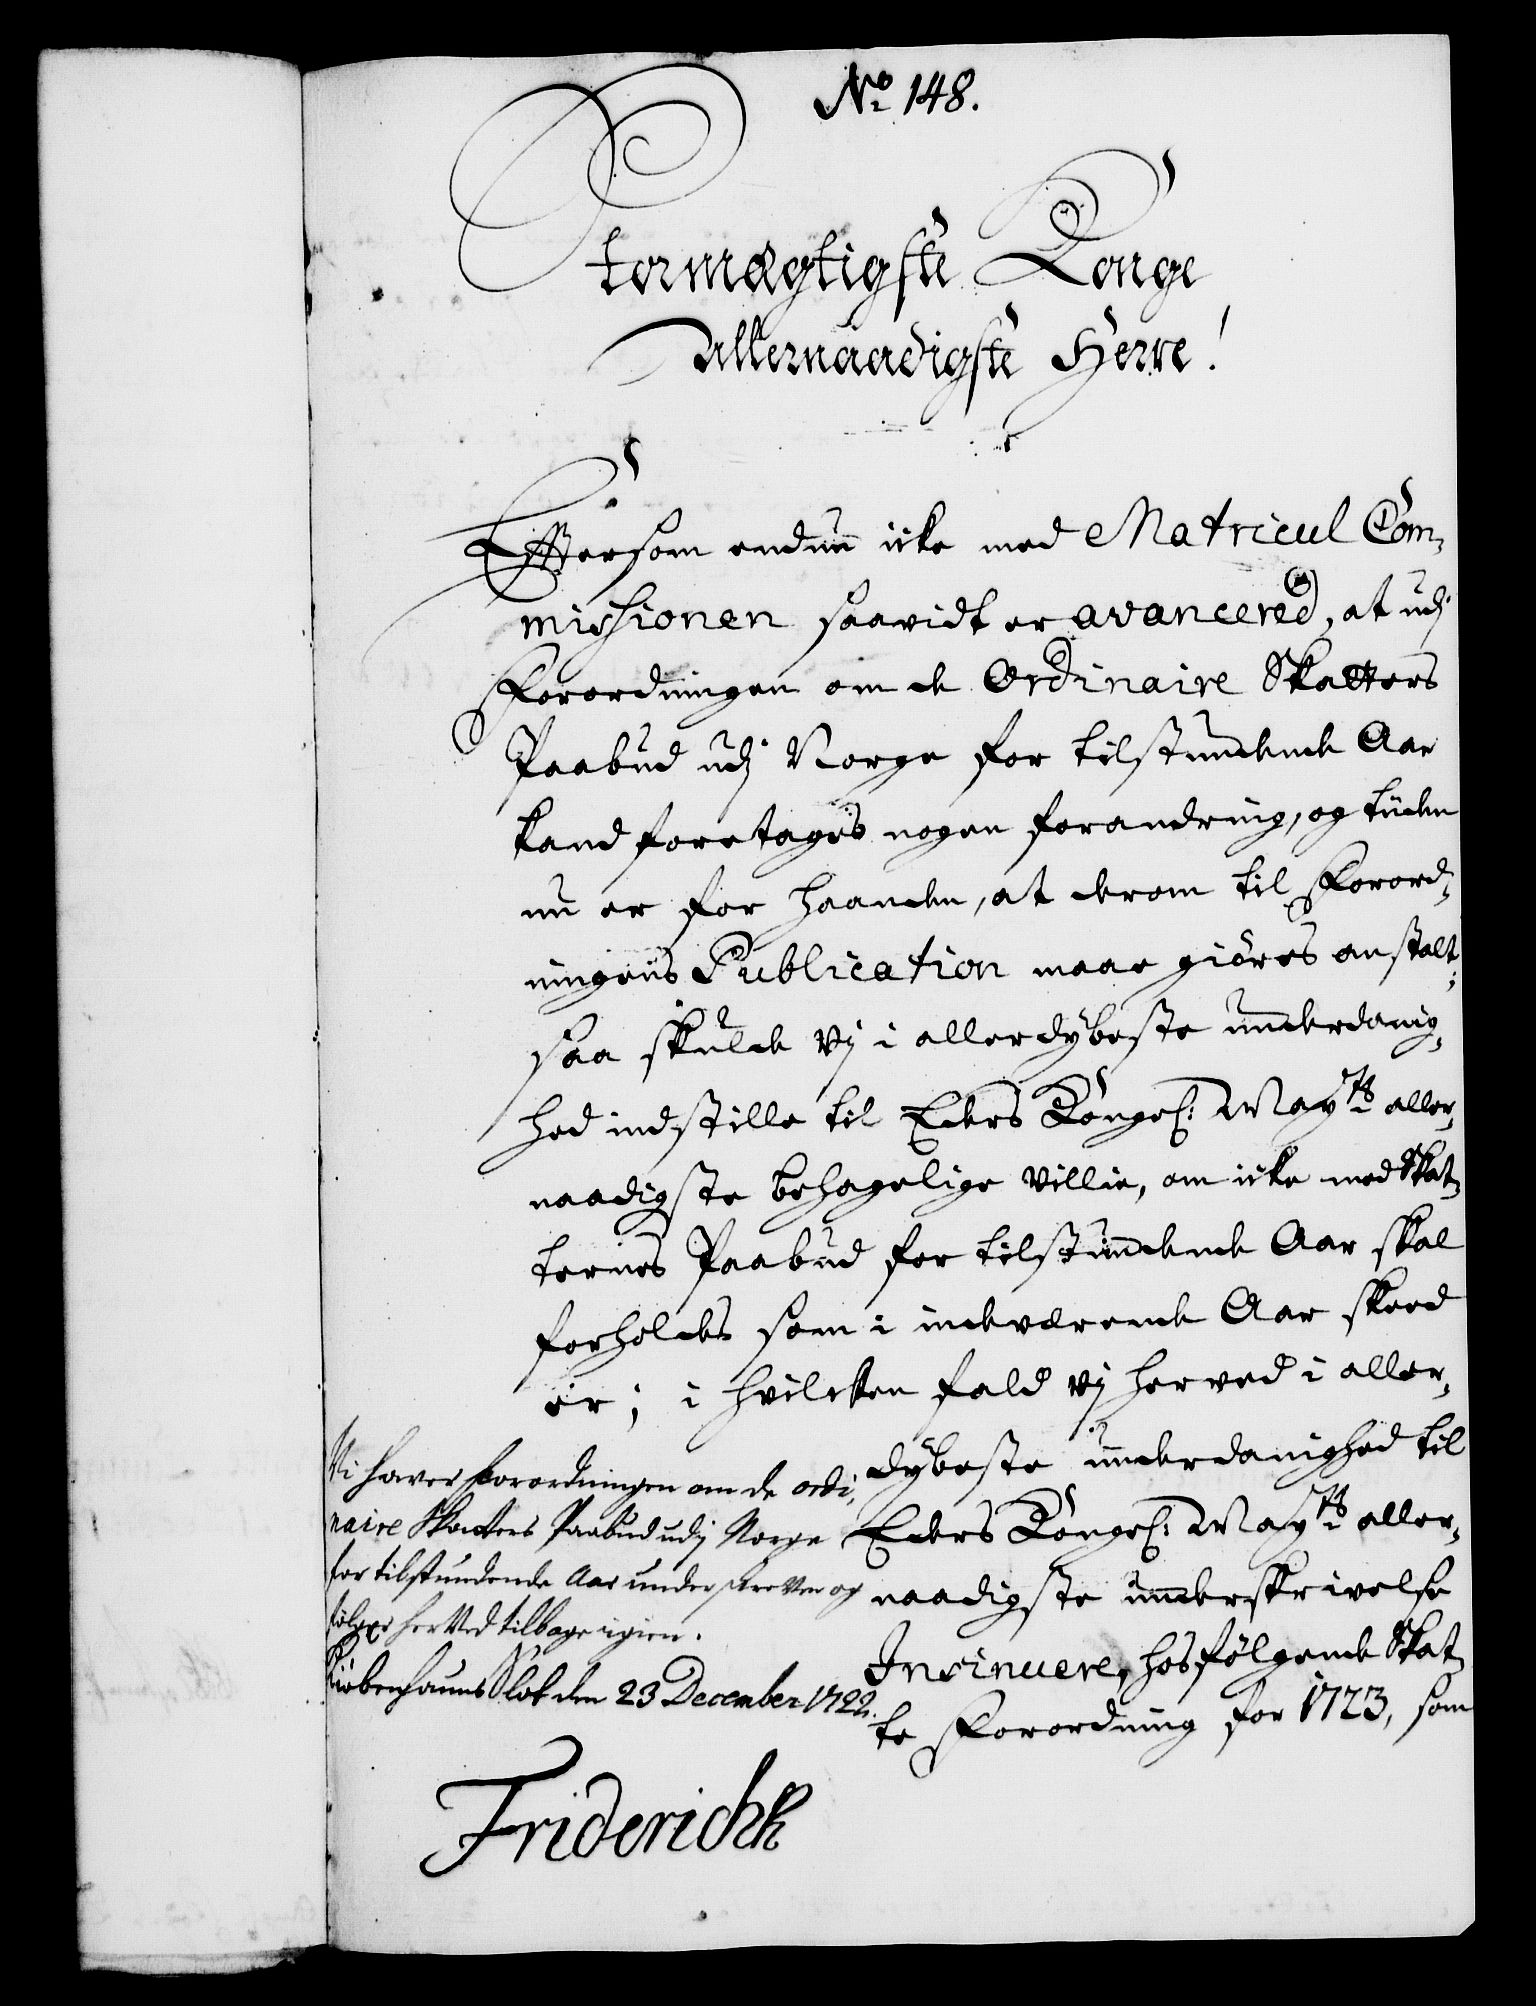 No 148.
Stormægtigste Konge
Allernaadigste Herre!
Eftersom endnu icke med Matricul Com-
missionen saavidt er avancered, at udj
Forordningen om de Ordinaire Skatters
Paabud udj Norge for tilstundende Aar
kand foretages nogen forandring, og tiiden
nu er for haanden, at derom til Forord-
ningens Publication maae giöres anstalt;
saa skulde vj i allerdybeste underdanig-
hed indstille til Eders Kongel: Mayts aller-
naadigste behagelige Villie, om icke med Skat-
ternes Paabud for tilstundende Aar skal
forholdes som i indeværende Aar skeed
er; i hvilcken fald vj herved i aller-
dybeste underdanighed til
Eders Kongel: Mayts aller-
naadigste underskrivelse
Insinuere, hosfølgende Skat-
te Forordning for 1723, som
Vi haver Forordningen om de ordi-
naire Skatters Paabud udj Norge
for tilstundende Aar underskreven og
følger herved tilbage igien.
Kiöbenhauns Slot den 23 December 1722.
Friderich R